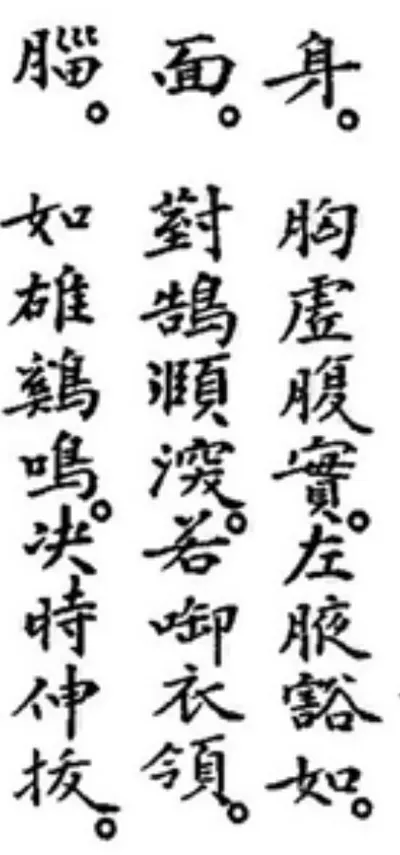 身。胸虛腹實。左腋豁如。
面。對鵠湥。若啣衣領。
腦。如雄鷄鳴。决時伸拔。